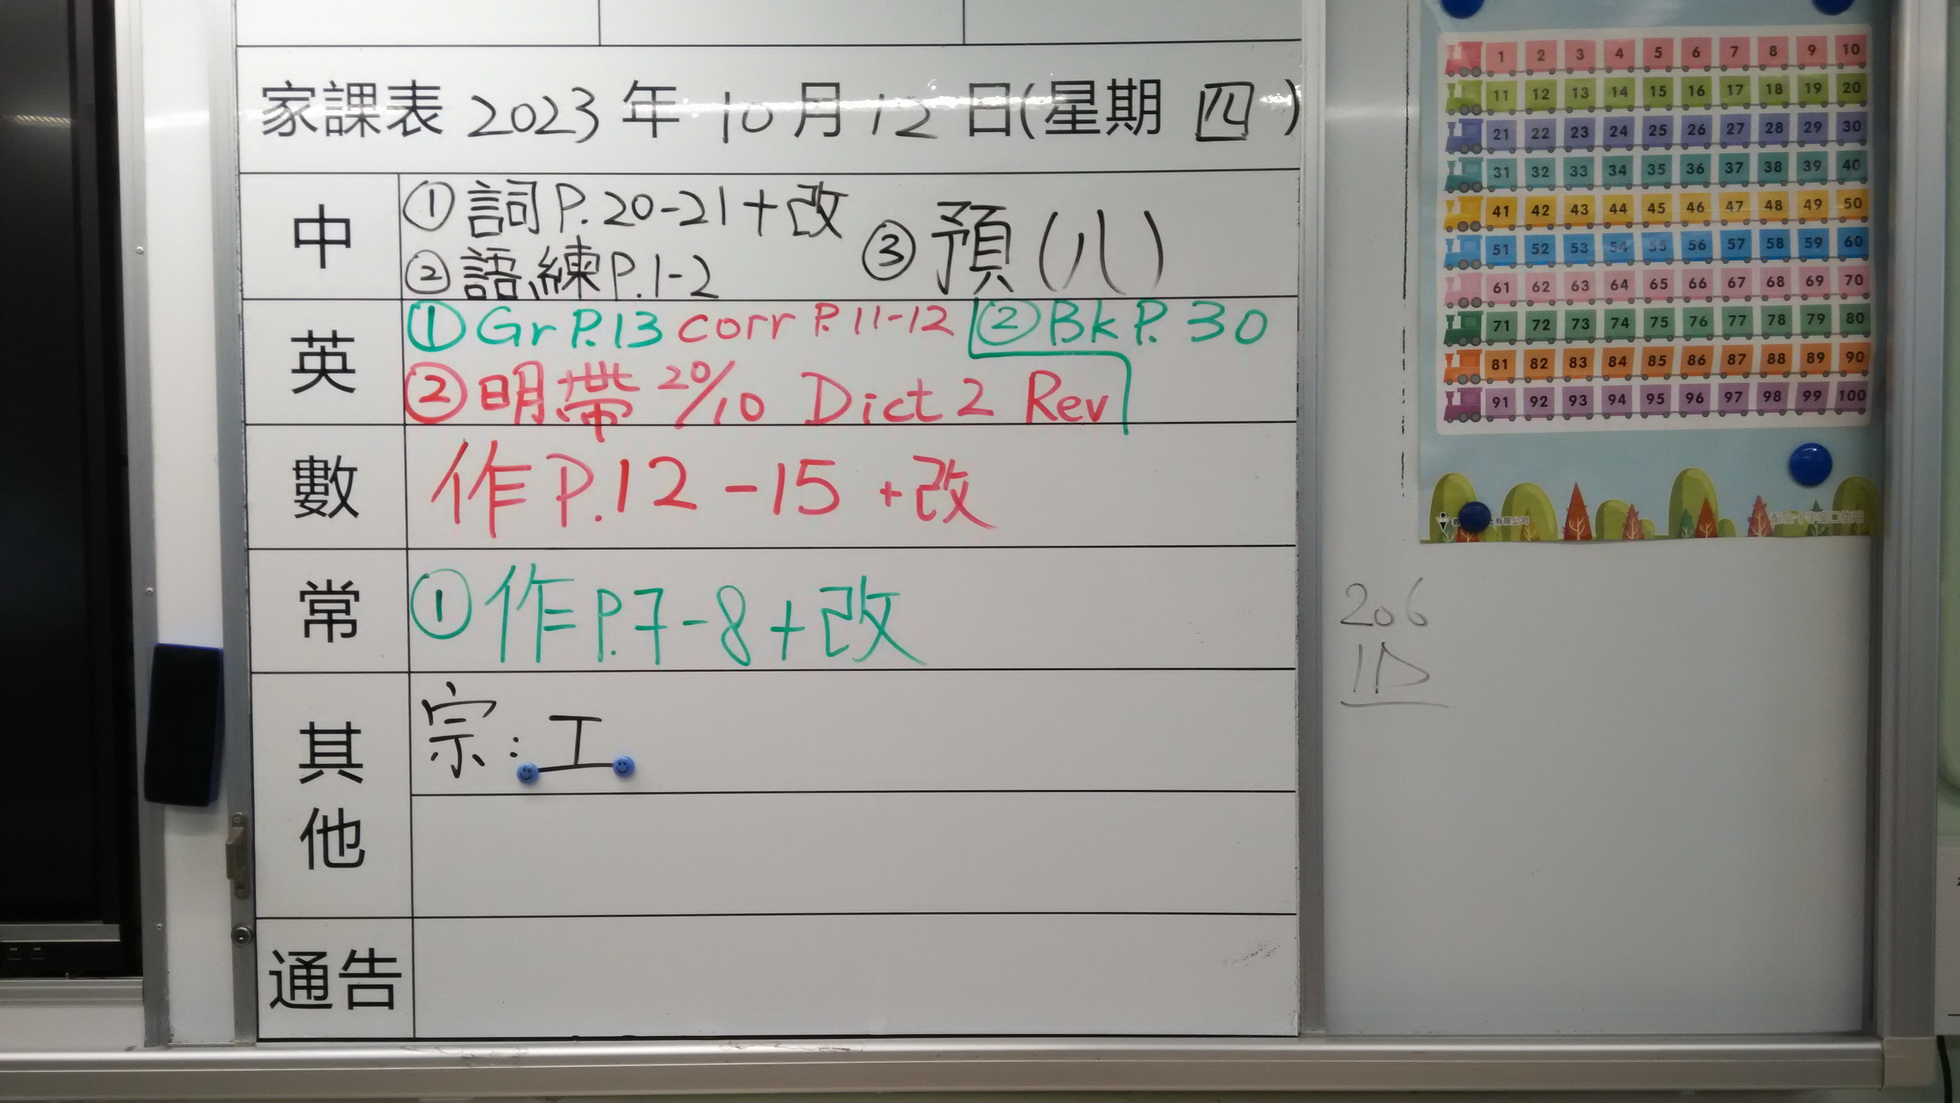 家課表 2023 年 10 月 12 日(星期 四 )
中
① 詞 P.20-21+改
② 語練 P.1-2
③ 預(八)
英
① Gr P.13 corr P.11-12 ② Bk P. 30
② 明帶 20/10 Dict 2 Rev
數
作 P.12-15 +改
常
① 作 P.7-8+改
其他
宗:工
通告
1 2 3 4 5 6 7 8 9 10
11 12 13 14 15 16 17 18 19 20
21 22 23 24 25 26 27 28 29 30
31 32 33 34 35 36 37 38 39 40
41 42 43 44 45 46 47 48 49 50
51 52 53 54 55 56 57 58 59 60
61 62 63 64 65 66 67 68 69 70
71 72 73 74 75 76 77 78 79 80
81 82 83 84 85 86 87 88 89 90
91 92 93 94 95 96 97 98 99 100
有限公司
206
1D